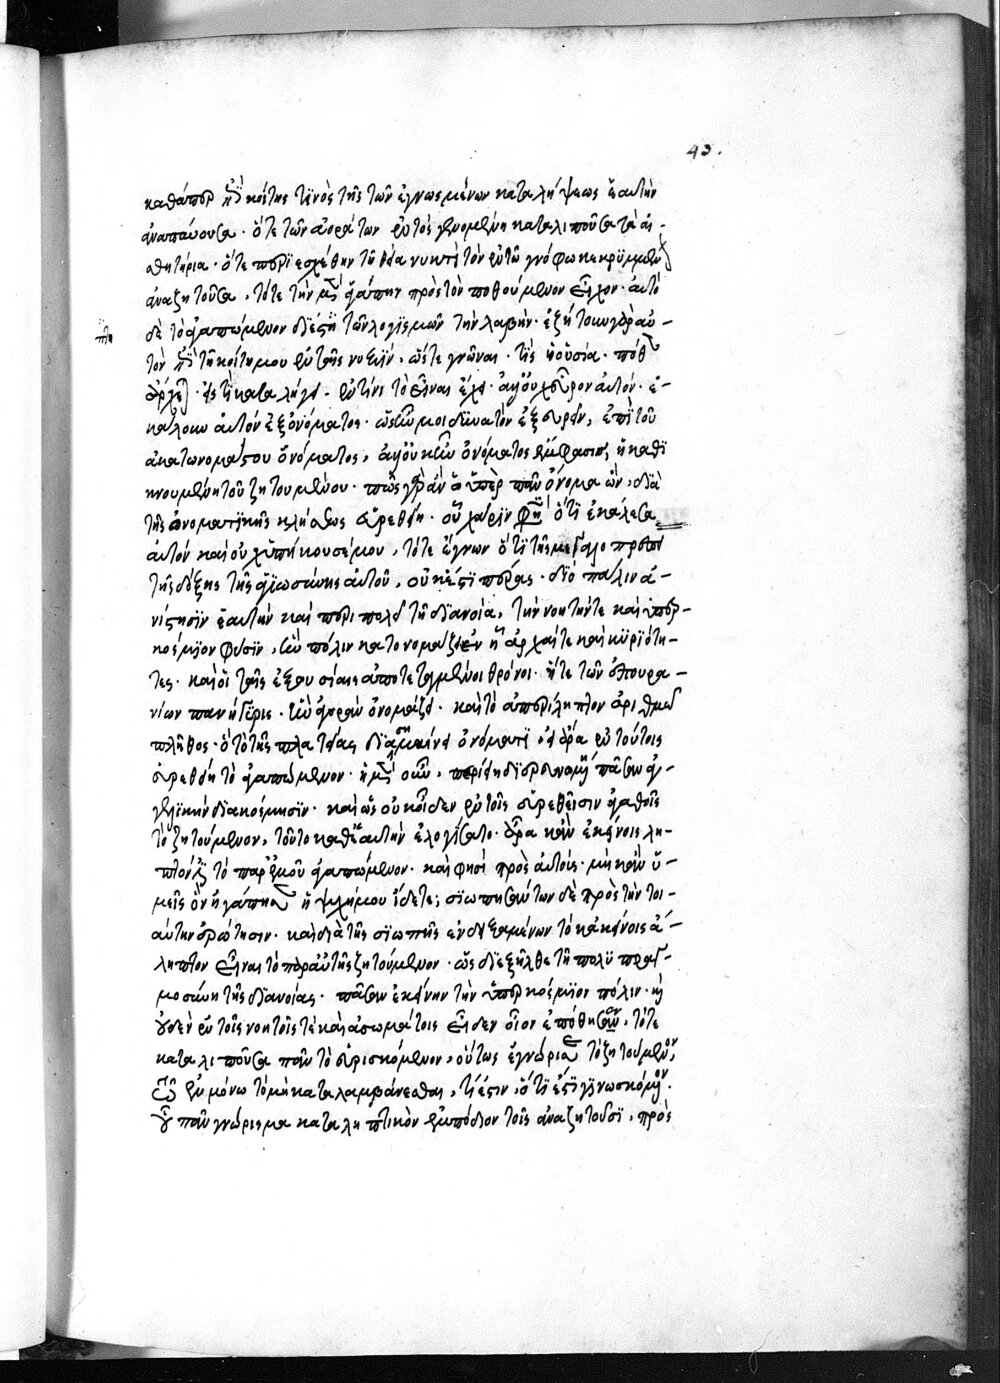 43.
καθάπερ ἐπὶ κοίτης τινὸς τῆς τῶν ἐγνωσμένων καταλήψεως ἑαυτὴν
ἀναπαύουσα · ὅτε τῶν ἀοράτων ἐντὸς γενομένη καταλιποῦσα τὰ αἰ-
σθητήρια · ὅτε περιεσχέθη τῇ θεία νυκτὶ τὸν ἐν τῶ γνόφω κεκρυμμένον
ἀναζητοῦσα, τότε τὴν μὲν ἀγάπην πρὸς τὸν ποθούμενον εἶχον · αὐτὸ
δὲ τὸ ἀγαπώμενον διέπτη τῶν λογισμῶν τὴν λαβήν · ἐζήτουν γὰρ αὐ-
τὸν ἐπὶ τῆ κοίτη μου ἐν ταῖς νυξὶν, ὥστε γνῶναι · τίς ἡ οὐσία · πόθεν
ἄρχεται · εἰς τί καταλήγει · ἐν τίνι τὸ εἶναι ἔχει · ἀλλ' οὐχ εὗρον αὐτόν · ἐ-
κάλουν αὐτὸν ἐξ ὀνόματος · ὡς ἦν μοι δυνατὸν ἐξευρεῖν, ἐπὶ τοῦ
ἀκατονομάστου ὄνοματος, ἀλλ' οὐκ ἦν ὀνόματος ἔμφασις, ἡ καθι
κνουμένη τοῦ ζητουμένου · πῶς γὰρ ἂν ὁ ὑπὲρ πᾶν ὄνομα ὢν, διὰ
τῆς ὀνοματικῆς κλήσεως εὑρεθείη · οὗ χάριν φησὶν ὅτι ἐκάλεσα
αὐτὸν καὶ οὐχ ὑπήκουσέ μου, τότε ἔγνων ὅτι τῆς μεγαλοπρεποῦς
τῆς δόξης τῆς ἁγιωσύνης αὐτοῦ, οὐκ ἔστι πέρας · διὸ πάλιν ἀ-
νίστησιν ἑαυτὴν καὶ περιπολεῖ τῆ διανοία, τὴν νοητήν τε καὶ ὑπερ-
κόσμιον φύσιν, ἣν πόλιν κατονομάζει ἐν ᾗ αἱ ἀρχαί τε καὶ κυριότη-
τες · καὶ οἱ ταῖς ἐξουσίαις ἀποτεταγμένοι θρόνοι · ἥ τε τῶν ἐπουρα-
νίων πανήγυρις · ἣν ἀγορὰν ὀνομάζει · καὶ τὸ ἀπερίληπτον ἀριθμῶ
πλῆθος · ὃ τῶ τῆς πλατείας διασημαίνει ὀνόματι, εἰ ἄρα ἐν τούτοις
εὑρεθείη τὸ ἀγαπώμενον · ἡ μὲν οὖν, περιήει διερευνωμένη πᾶσαν ἀγ-
γελικὴν διακόσμησιν · καὶ ὡς οὐκ εἶδεν ἐν τοῖς εὑρεθεῖσιν ἀγαθοῖς
τὸ ζητούμενον, τοῦτο καθ' ἑαυτὴν ἐλογίσατο · ἄρα κἂν ἐκείνοις λη-
πτόν ἐστι τὸ παρ' ἐμοῦ ἀγαπώμενον · καὶ φησὶ πρὸς αὐτούς · μὴ κἂν ὑ-
μεῖς ὃν ἠγάπησεν ἡ ψυχή μου ἴδετε; σιωπησάντων δὲ πρὸς τὴν τοι-
αύτην ἐρώτησιν · καὶ διὰ τῆς σιωπῆς ἐνδειξαμένων τὸ κἀκείνοις ἄ-
ληπτον εἶναι τὸ παρ' αὐτῆς ζητούμενον · ὡς διεξῆλθε τῆ πολυπραγ-
μοσύνη τῆς διανοίας · πᾶσαν ἐκείνην τὴν ὑπερκόσμιον πόλιν · καὶ
οὐδὲν ἐν τοῖς νοητοῖς τε καὶ ἀσωμάτοις εἶδεν οἷον ἐπόθησεν, τότε
καταλιποῦσα πᾶν τὸ εὑρισκόμενον, οὕτως ἐγνώρισε τὸ ζητούμενον,
τὸ ἐν μόνω τῶ μὴ καταλαμβάνεσθαι, τί ἐστιν, ὅτι ἐστὶ γινωσκόμενον ·
οὗ πᾶν γνώρισμα καταληπτικὸν ἐμπόδιον τοῖς ἀναζητοῦσι, πρὸς